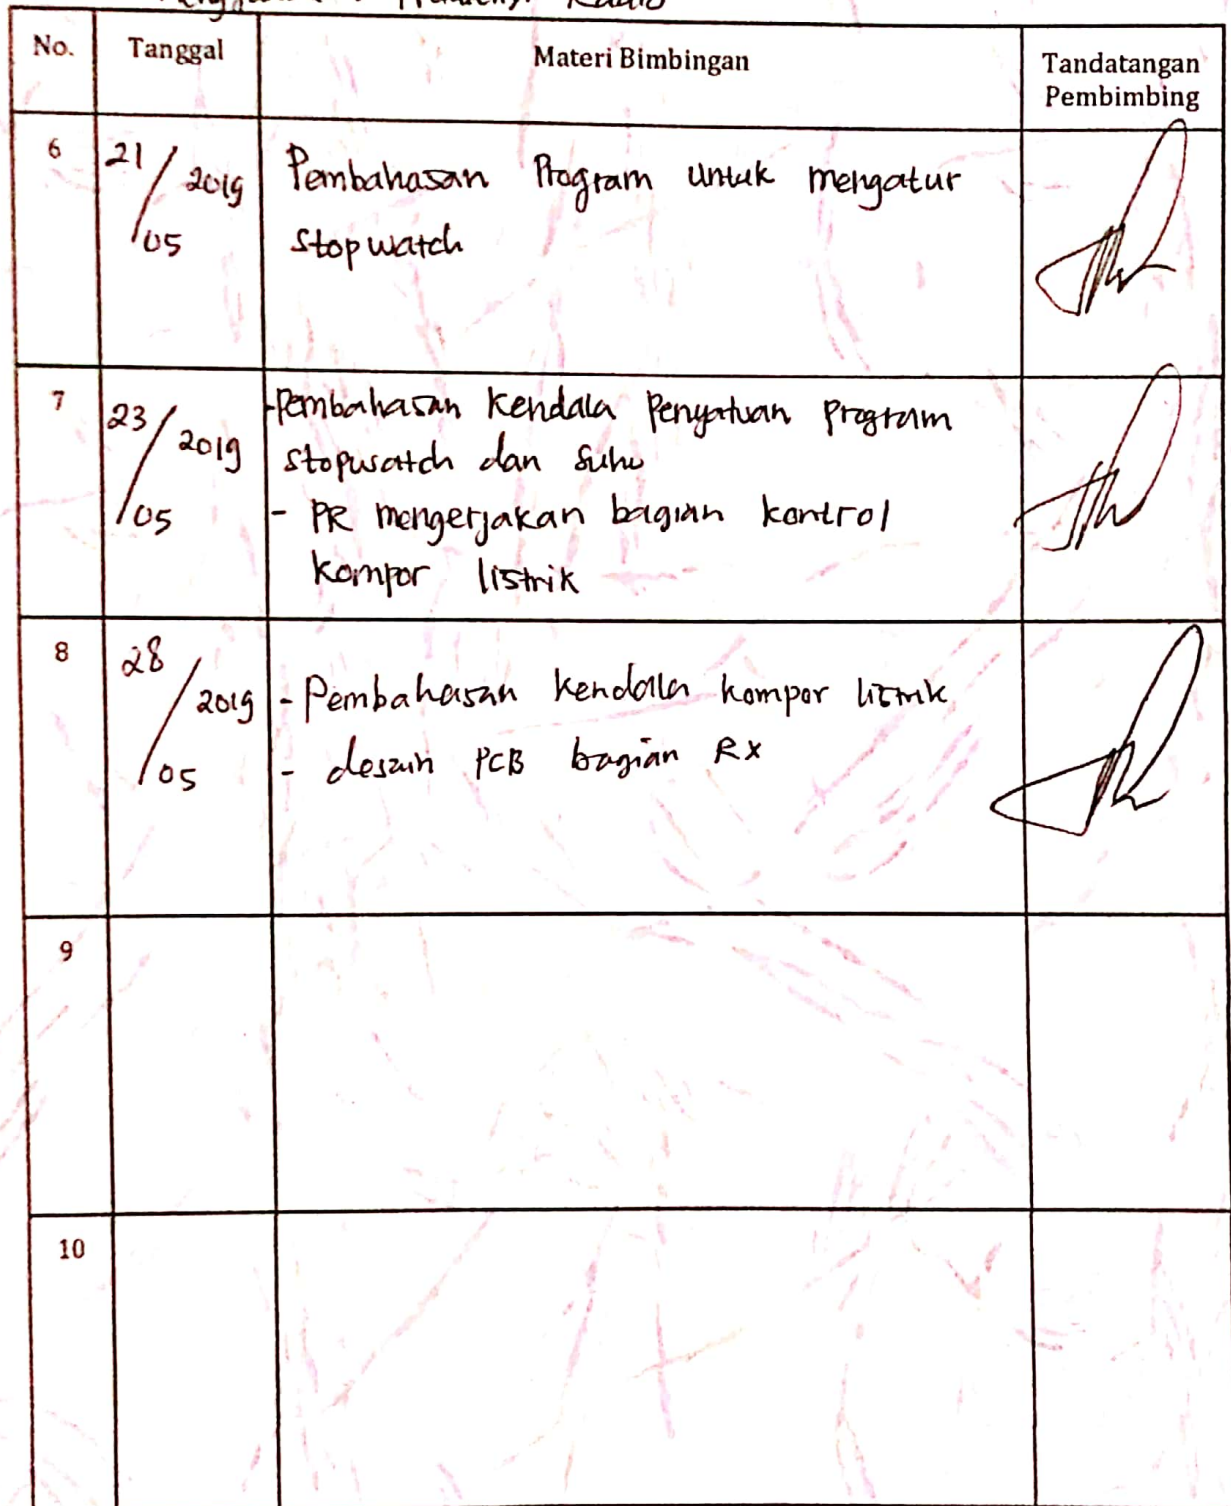 Radio
No. Tanggal Materi Bimbingan Tandatangan
Pembimbing
6 21/05 2019 Pembahasan Program untuk mengatur
stopwatch
7 23/05 2019 - Pembahasan kendala Penyatuan Program
stopwatch dan suhu
- PR mengerjakan bagian kontrol
kompor listrik
8 28/05 2019 - Pembahasan kendala kompor listrik
- desain PCB bagian RX
9
10